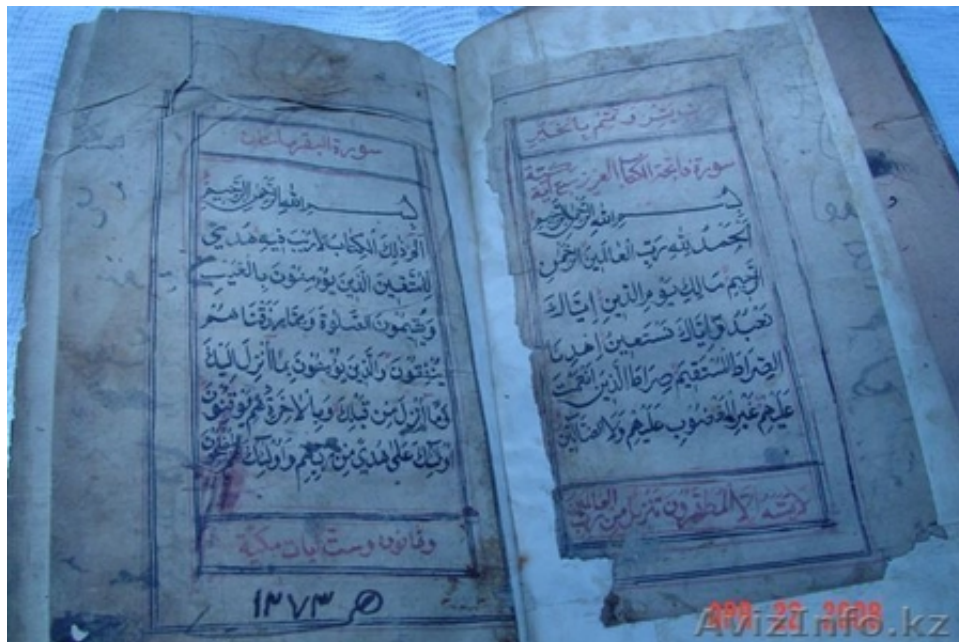 رب يسر وتمم بالخير
سورة فاتحة الكتاب العزيز سبع آية
بسم الله الرحمن الرحيم
الحمد لله رب العالمين الرحمن
الرحيم مالك يوم الدين إياك
نعبد وإياك نستعين اهدنا
الصراط المستقيم صراط الذين انعمت
عليهم غير المغضوب عليهم ولا الضالين
لا يمسه الا المطهرون تنزيل من رب العالمين
سورة البقرة مائتان
بسم الله الرحمن الرحيم
الم ذلك الكتاب لا ريب فيه هدى
للمتقين الذين يؤمنون بالغيب
ويقيمون الصلوة ومما رزقناهم
ينفقون والذين يؤمنون بما أنزل اليك
وما أنزل من قبلك وبالاخرة هم يوقنون
اولئك على هدى من ربهم واولئك هم المفلحون
وثمانون وست آيات مكية
١٣٧٣
APR 22 2008
AvizInfo.kz